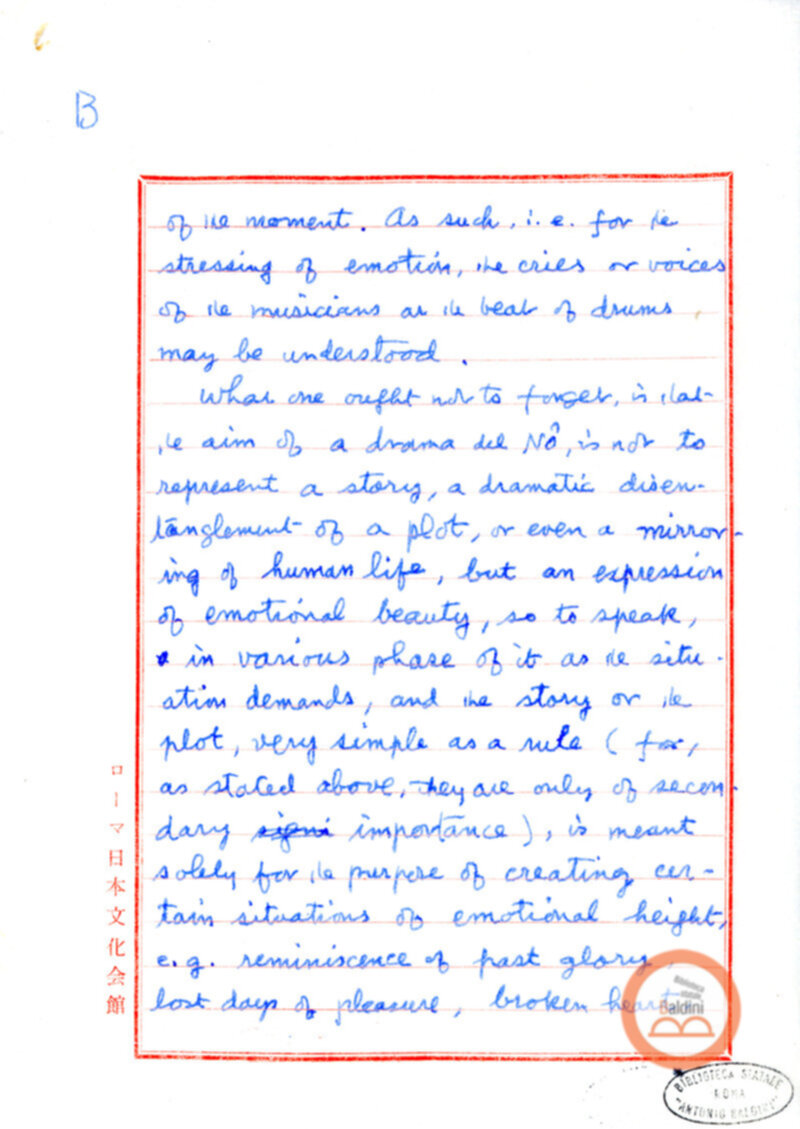 B
of the moment. As such, i.e. for the
stressing of emotion, the cries or voices
of the musicians as the beat of drums,
may be understood.
What one ought not to forget, is that
the aim of a drama del Nô, is not to
represent a story, a dramatic disen-
tanglement of a plot, or even a mirror-
ing of human life, but an expression
of emotional beauty, so to speak,
in various phase of it as the situ-
ation demands, and the story or the
plot, very simple as a rule (for,
as stated above, they are only of secon-
dary signi importance), is meant
solely for the purpose of creating cer-
tain situations of emotional height,
e.g. reminiscence of past glory,
lost days of pleasure, broken heart
ローマ日本文化会館
Biblioteca
statale
Baldini
BIBLIOTECA STATALE
ROMA
"ANTONIO BALDINI"